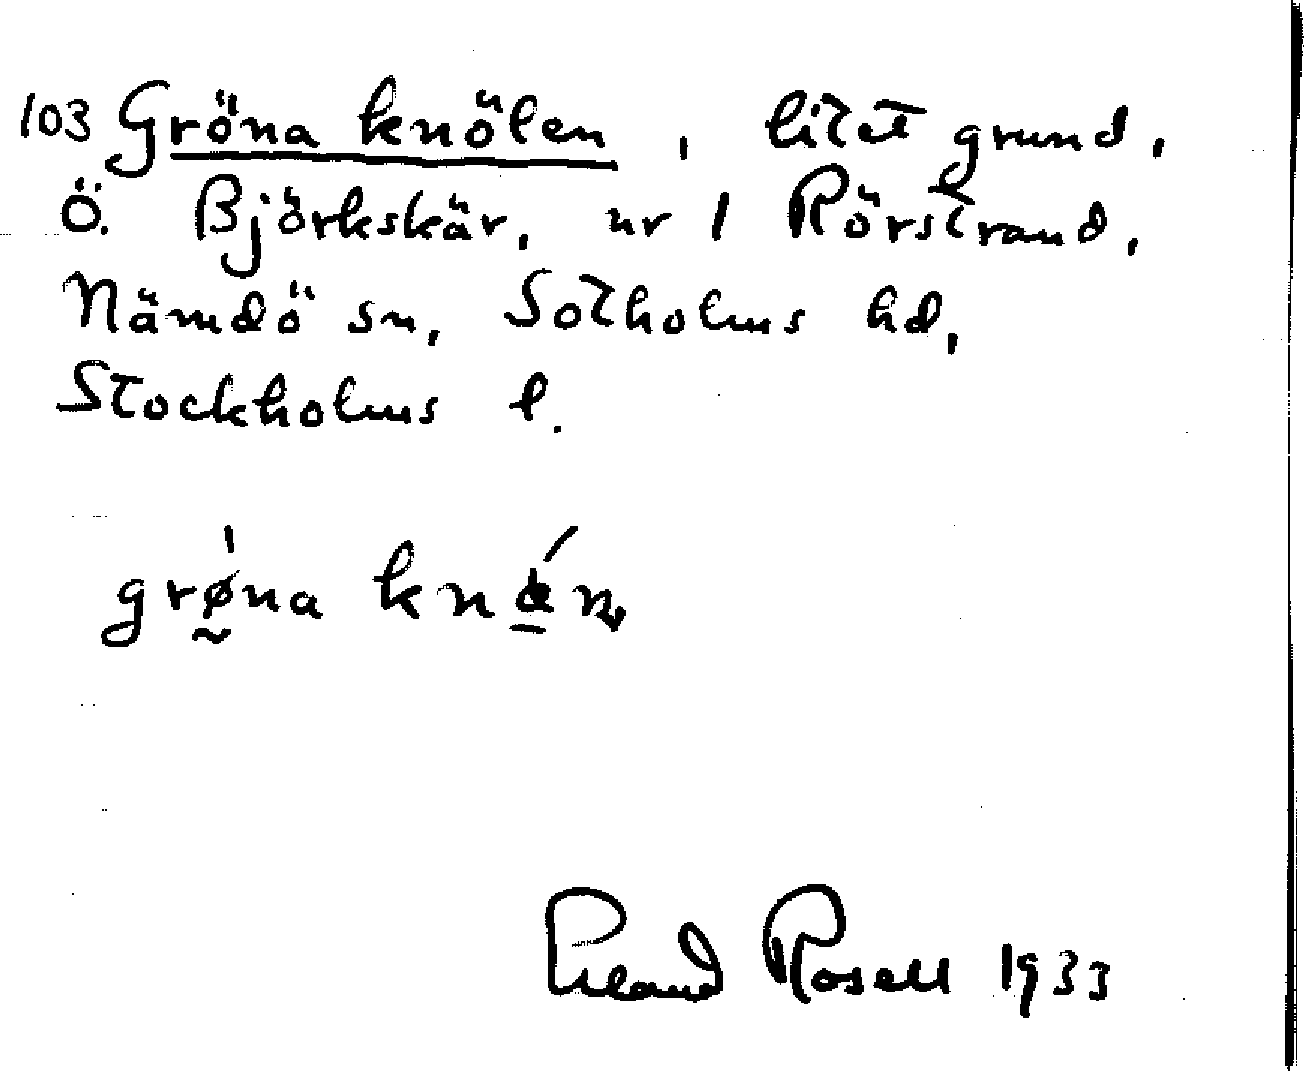 103 Gröna knölen, litet grund,
Ö. Björkskär, nr 1 Rörstrand,
Nämdö sn, Sotholms hd,
Stockholms l.
grø̰̍na
Erland Rosell 1933